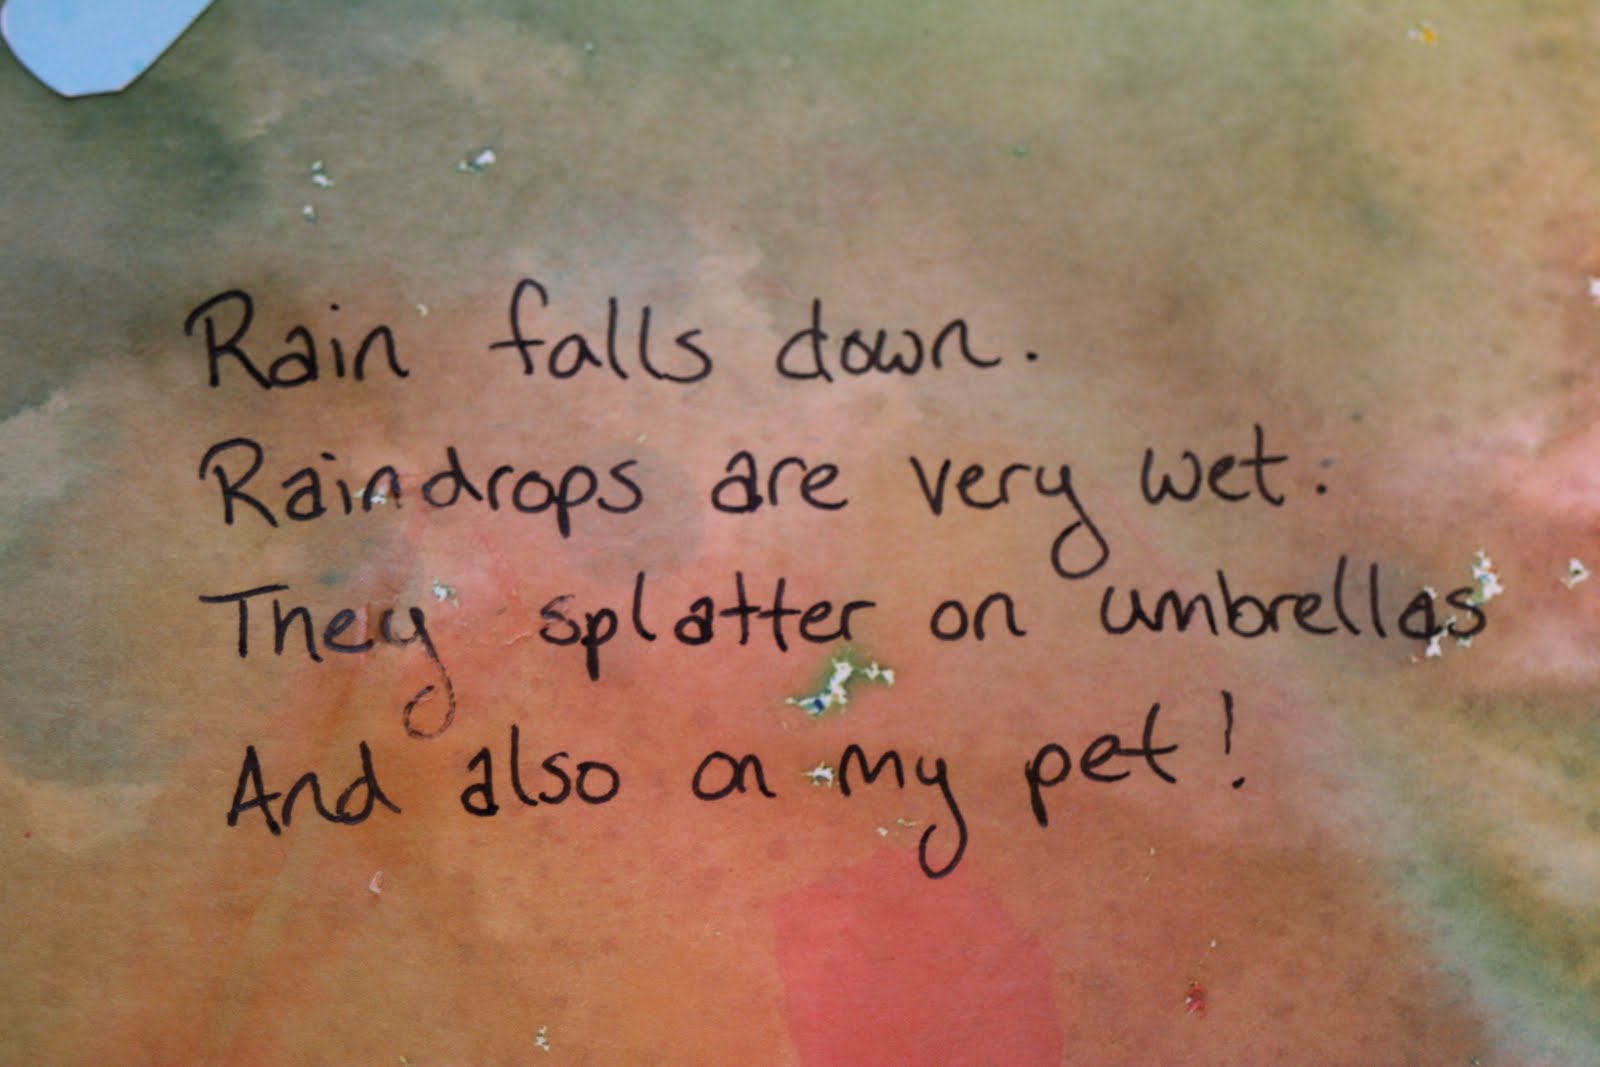 Rain falls down.
Raindrops are very wet.
They splatter on umbrellas
And also on my pet!